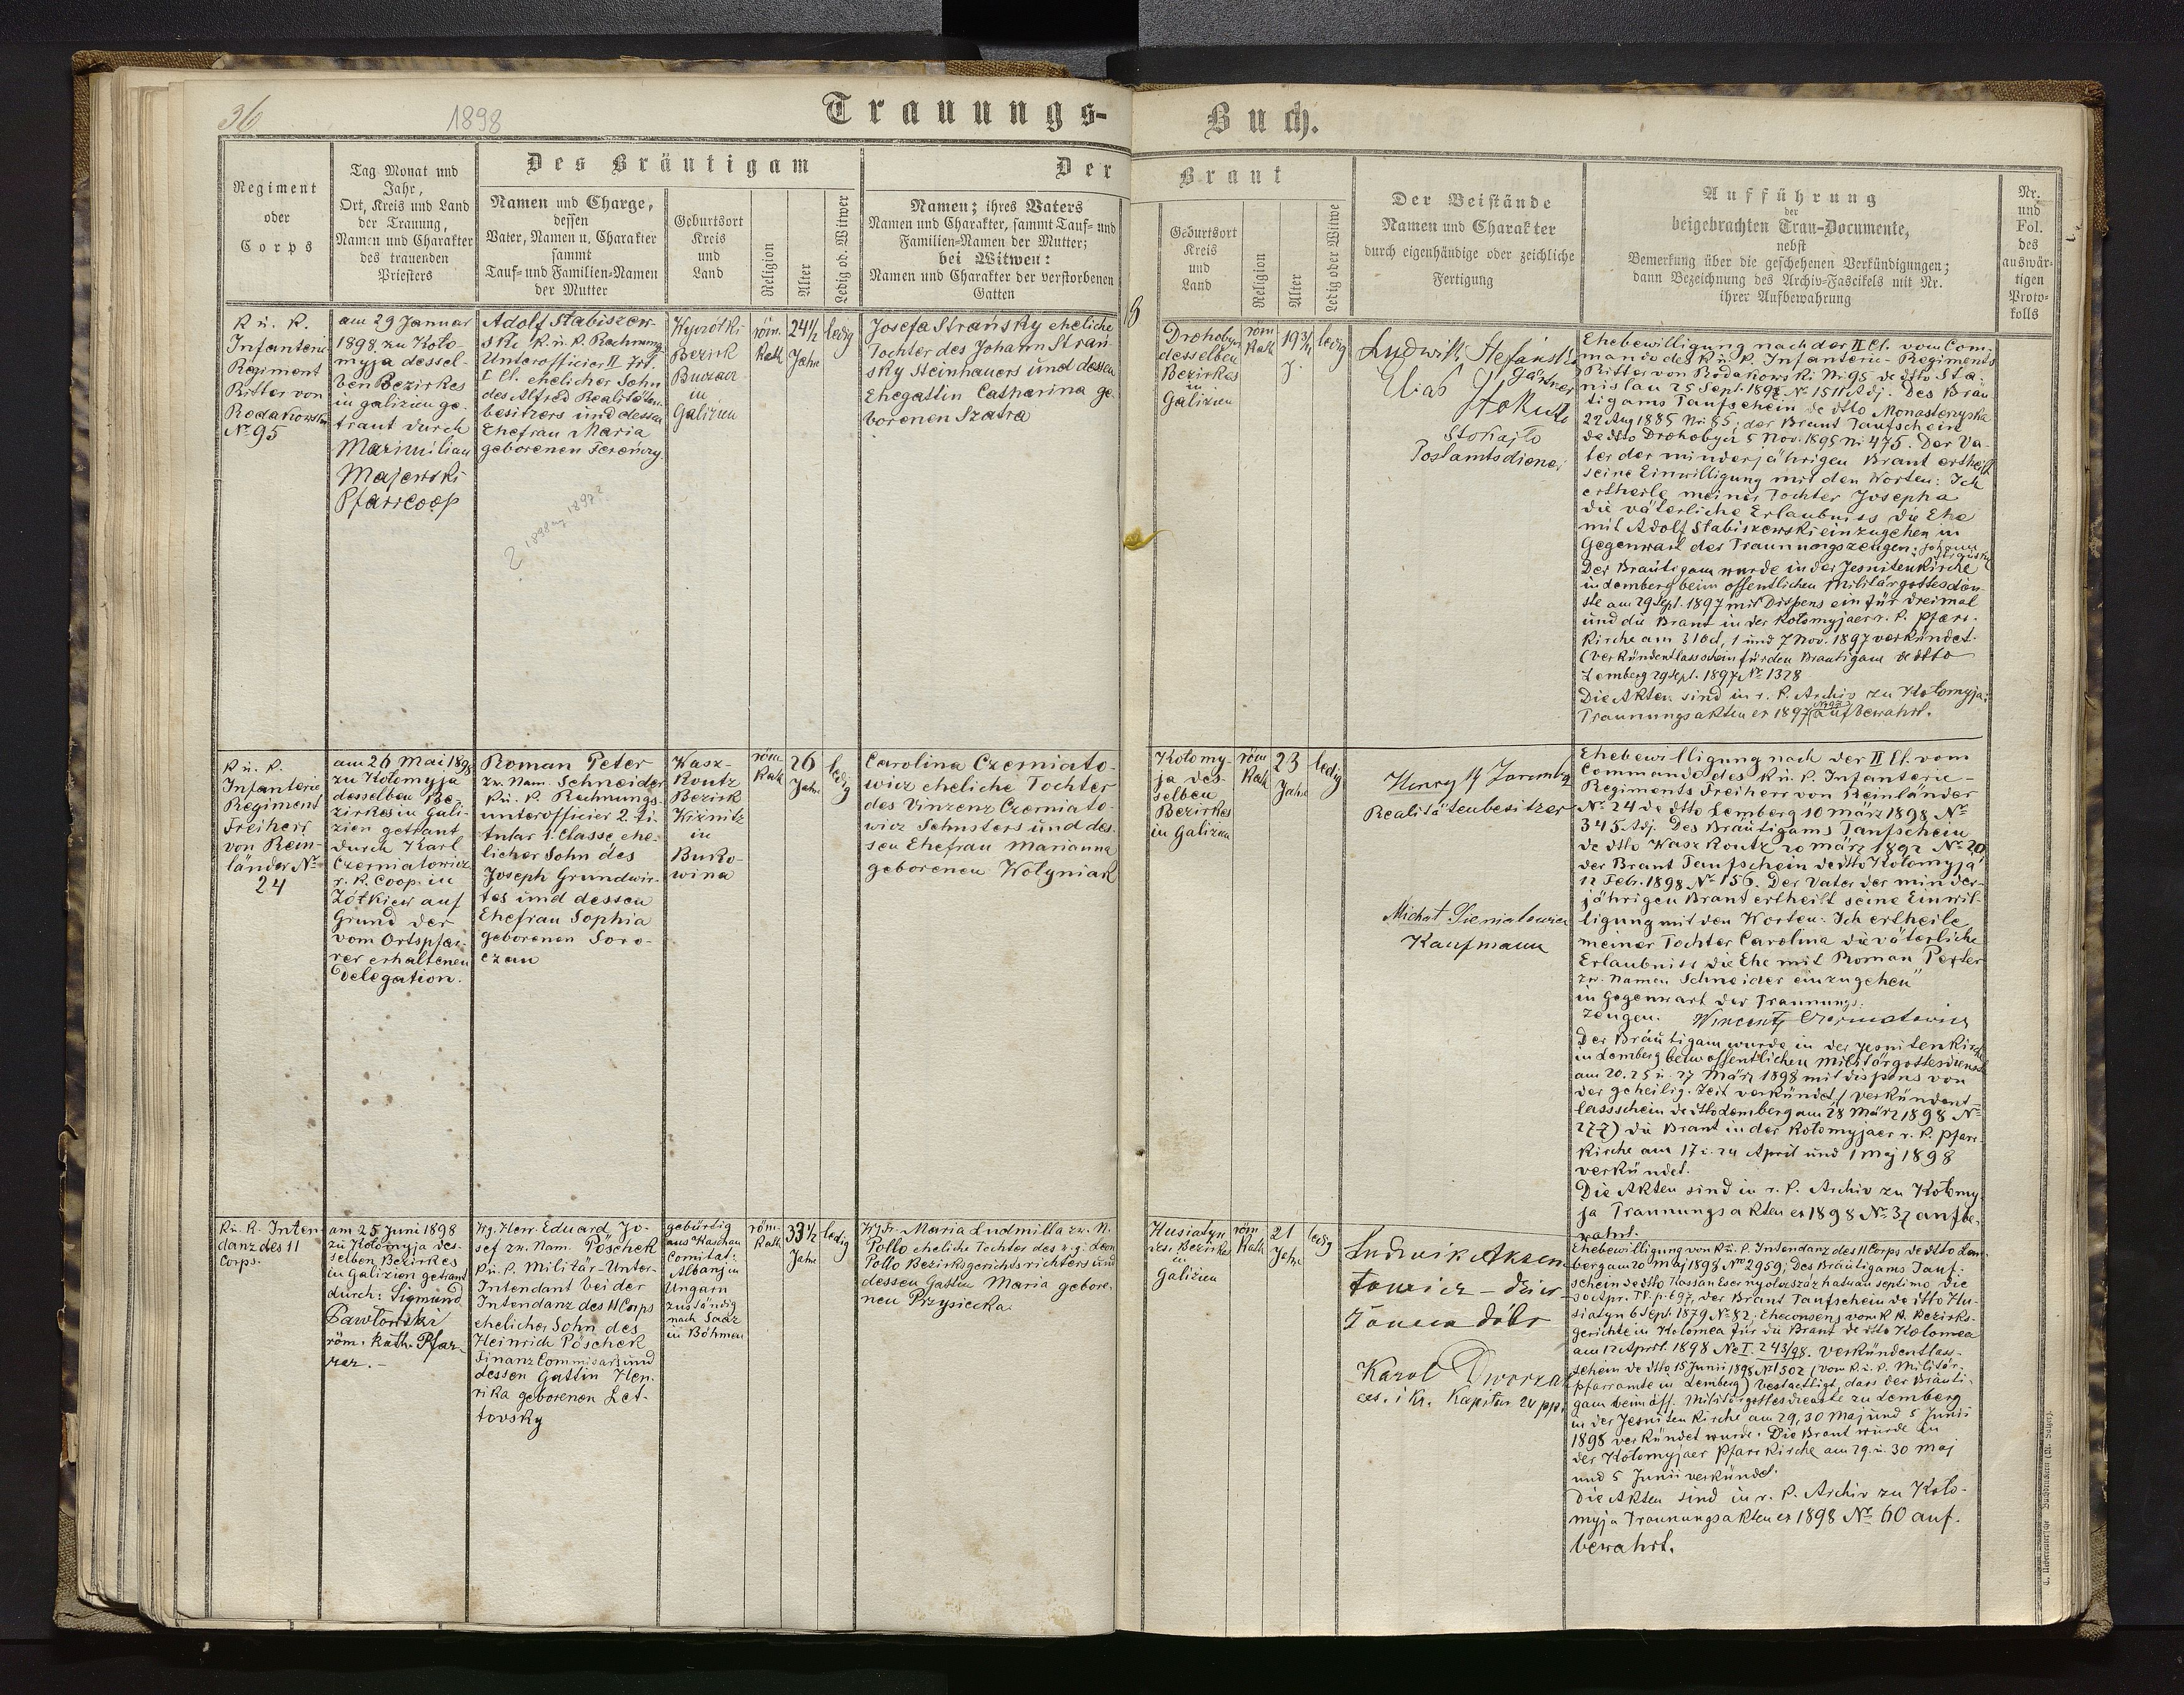 36
1898
Trauungs-
Buch.
Regiment
oder
Corps
Tag Monat und
Jahr,
Ort, Kreis und Land
der Trauung,
Namen und Charakter
des trauenden
Priesters
Des Bräutigam
Namen und Charge,
dessen
Vater, Namen u. Charakter
sammt
Tauf- und Familien-Namen
der Mutter
Geburtsort
Kreis
und
Land
Religion
Alter
Ledig od. Witwer
Der
Namen; ihres Vaters
Namen und Charakter, sammt Tauf- und
Familien-Namen der Mutter;
bei Witwen:
Namen und Charakter der verstorbenen
Gatten
Braut
Geburtsort
Kreis
und
Land
Religion
Alter
Ledig oder Witwe
Der Beistände
Namen und Charakter
durch eigenhändige oder zeichliche
Fertigung
Aufführung
der
beigebrachten Trau-Documente,
nebst
Bemerkung über die geschehenen Verkündigungen;
dann Bezeichnung des Archiv-Fascikels mit Nr.
ihrer Aufbewahrung
Nr.
und
Fol.
des
auswär-
tigen
Proto-
kolls
K. u. K.
Infanterie
Regiment
Ritter von
Rodakowski
No 95
am 29 Januar
1898 zu Koło-
myja dessel-
ben Bezirkes
in Galizien ge-
traut durch
Maximilian
Majewski
Pfarrcoop
Adolf Stabiszew-
ski K. u. K. Rechnungs
Unterofficier II
I Cl. ehelicher Sohn
des Alfred Realitäten-
besitzers und dessen
Ehefrau Maria
geborenen Ferenczy
1898 1897?
Bezirk
Buczacz
in
Galizien
röm.
Kath
24½
Jahre
ledig
Josefa Stransky eheliche
Tochter des Johann Stran-
sky Steinhauers und dessen
Ehegattin Catharina ge-
borenen Szatra
Drohobycz
desselben
Bezirkes
in
Galizien
röm
Kath
19¾
J.
ledig
Ludwik Stefański
Gärtner
Elias Stokajło
Stokajło
Postamtsdiener
Ehebewilligung nach der II Cl. vom Com-
mando des K. u. K. Infanterie-Regiments
Ritter von Rodakowski Nr 95 de dtto Sta-
nislau 25 Sept. 1897 No 1511 Adj. Des Bräu-
tigams Taufschein de dtto Monasterzyska
22 Aug 1885 Nr. 85; der Braut Taufschein
de dtto Drohobycz 5 Nov. 1895 Nr 475. Der Va-
ter der minderjährigen Braut ertheilt
seine Einwilligung mit den Worten: Ich
ertheile meiner Tochter Josepha
die väterliche Erlaubniss die Ehe
mit Adolf Stabiszewski einzugehen in
Gegenwart der Trauungszeugen: Johann
Stransky
Der Bräutigam wurde in der Jesuitenkirche
in Lemberg beim öffentlichen Militärgottesdien-
ste am 29 Sept. 1897 mit Dispens ein für dreimal
und die Braut in der Kołomyjaer r. k. Pfarr-
kirche am 31 Oct, 1 und 7 Nov. 1897 verkündet.
(Verkündentlassschein für den Bräutigam de dtto
Lemberg 29 Sept. 1897 No 1328
Die Akten sind in r. k. Archiv zu Kołomyja:
Trauungsakten ex 1897 aufbewahrt.
K. u. K.
Infanterie
Regiment
Freiherr
von Rein-
länder No
24
am 26 Mai 1898
zu Kołomyja
desselben Be-
zirkes in Gali-
zien getraut
durch Karl
Czerniatowicz
r. k. Coop. in
Żółkiew auf
Grund der
vom Ortspfar-
rer erhaltenen
Delegation.
Roman Peter
zw. Nam. Schneider
K. u. K. Rechnungs-
unterofficier 2. Ti-
tular 1. Classe ehe-
licher Sohn des
Joseph Grundwir-
tes und dessen
Ehefrau Sophia
geborenen Soro-
czan
Wasz-
koutz
Bezirk
Wiznitz
in
Buko-
wina
röm
Kath
26
Jahre
ledig
Carolina Czerniato-
wicz eheliche Tochter
des Vinzenz Czerniato-
wicz Schusters und des-
sen Ehefrau Marianna
geborenen Wołyniak
Kołomy-
ja des-
selben
Bezirkes
in Galizien
röm
Kath
23
Jahre
ledig
Henryk Zaremba
Realitätenbesitzer
Michał
Kaufmann
Ehebewilligung nach der II Cl. vom
Commando des K. u. K. Infanterie-
Regiments Freiherr von Reinländer
No 24 de dtto Lemberg 10 März 1898 No
345 Adj. Des Bräutigams Taufschein
de dtto Waszkoutz 20 März 1892 No 20,
der Braut Taufschein de dtto Kołomyja
12 Febr. 1898 No 156. Der Vater der minder-
jährigen Braut ertheilt seine Einwil-
ligung mit den Worten: Ich ertheile
meiner Tochter Carolina die väterliche
Erlaubniss die Ehe mit Roman Peter
zw. Namen Schneider einzugehen"
in Gegenwart der Trauungs-
zeugen. Wincenty Czerniatowicz
Der Bräutigam wurde in der Jesuitenkirche
in Lemberg beim öffentlichen Militärgottesdienst
am 20. 25 u. 27 März 1898 mit Dispens von
der geheilig. Zeit verkündet / Verkündent-
lassschein de dtto Lemberg am 28 März 1898 No
277) die Braut in der Kołomyjaer r. k. Pfarr-
kirche am 17 u. 24 April und 1 Maj 1898
verkündet.
Die Akten sind in r. k. Archiv zu Kołomy-
ja Trauungsakten ex 1898 No 37 aufbe-
wahrt.
K. u. K. Inten-
danz des 11
Corps.
am 25 Juni 1898
zu Kołomyja des-
selben Bezirkes
in Galizien getraut
durch: Sigmund
Pawłowski
röm. kath. Pfar-
rer.-
Wg. Herr Eduard Jo-
sef zw. Nam. Pöschek
K. u. K. Militär-Unter-
Intendant bei der
Intendanz des 11 Corps
ehelicher Sohn des
Heinrich Pöschek
Finanz Commissärs und
dessen Gattin Hen-
rika geborenen Let-
tovsky
gebürtig
aus Kaschau
Comitat:
Albanj in
Ungarn
zuständig
nach Saaz
in Böhmen
röm.
Kath
33½
Jahre
ledig
Maria Ludmilla zw. N.
Pollo eheliche Tochter des Leon
Pollo Bezirksgerichtsrichters und
dessen Gattin Maria gebore-
nen Przysiecka
Husiatyn
des. Bezirks
in
Galizien
röm
Kath
21
Jahre
ledig
Ludwik Aksen-
towicz -
Karol Dworzak
Kapitan 24 pp.
Ehebewilligung von K. u. K. Intendanz des 11 Corps de dtto Lem-
berg am 20 Maj 1898 No 2959; Des Bräutigams Tauf-
schein de dtto Kassan Ezernyolczszáz hatvan septimo die
der Braut Taufschein de dtto Hu-
siatyn 6 Sept. 1879 No 82; Eheconsens vom K. K. Bezirks-
gerichte in Kolomea für die Braut de dtto Kolomea
am 12 April 1898 No I 243/98. Verkündentlass-
schein de dtto 15 Junii 1898 No 1502 / vom K. u. K. Militär-
pfarramte in Lemberg) bestaettigt, dass der Bräuti-
gam beim öff. Militärgottesdienste zu Lemberg
in der Jesuitenkirche am 29, 30 Maj und 5 Junii
1898 verkündet wurde. Die Braut wurde in
der Kołomyjaer Pfarrkirche am 29. u. 30 Maj
und 5 Junii verkündet.
Die Akten sind in r. k. Archiv zu Koło-
myja Trauungsakten ex 1898 No 60 auf-
bewahrt.